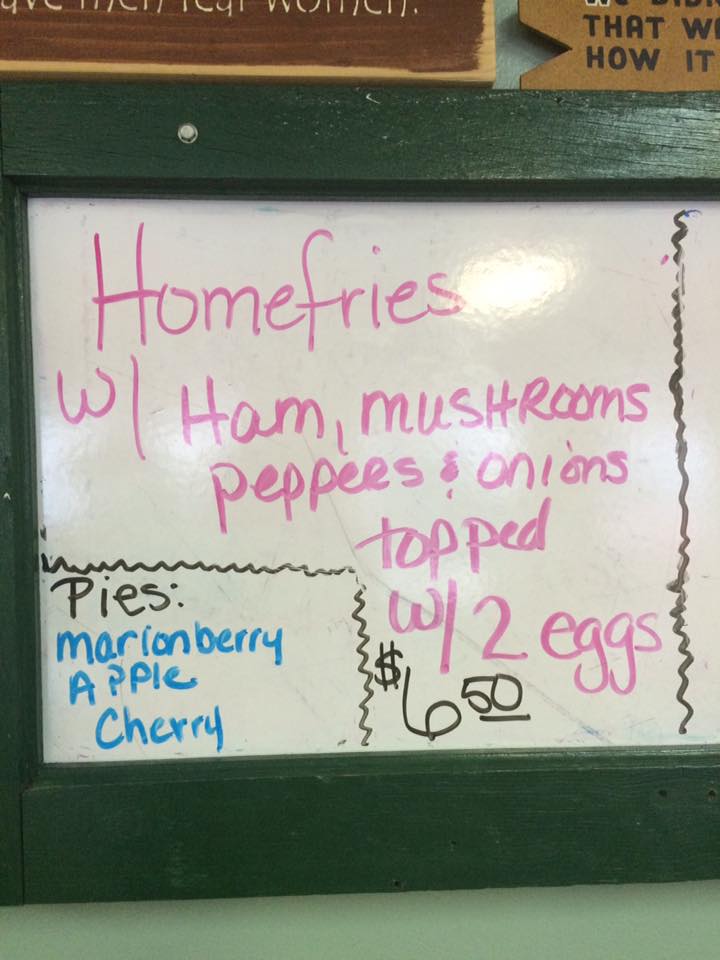 men fear women.
THAT
HOW IT
Homefries
w/ Ham, musHRooms
peppeRs & onions
topped
w/ 2 eggs
$6 50
Pies:
marionberry
APPLe
Cherry